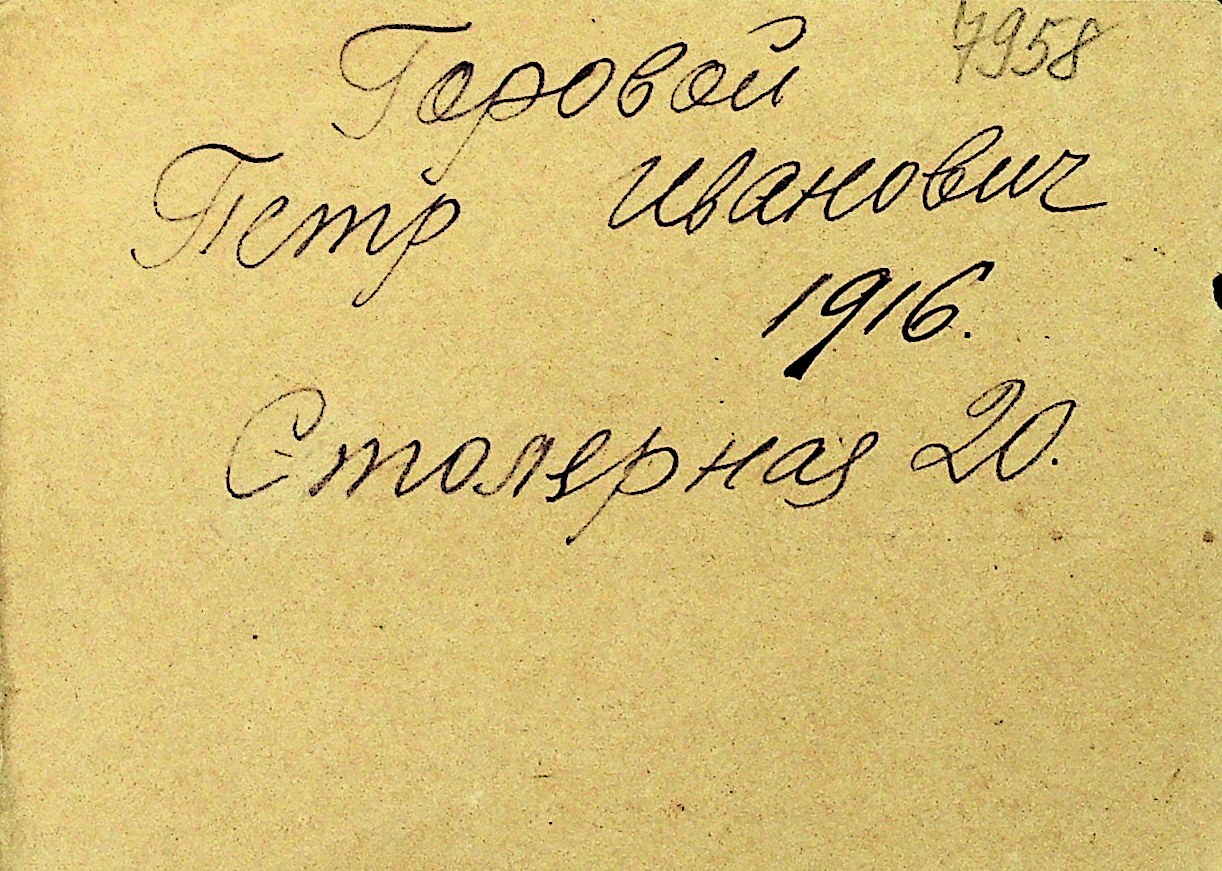 7958
Горовой
Петр Иванович
1916.
Столярная 20.